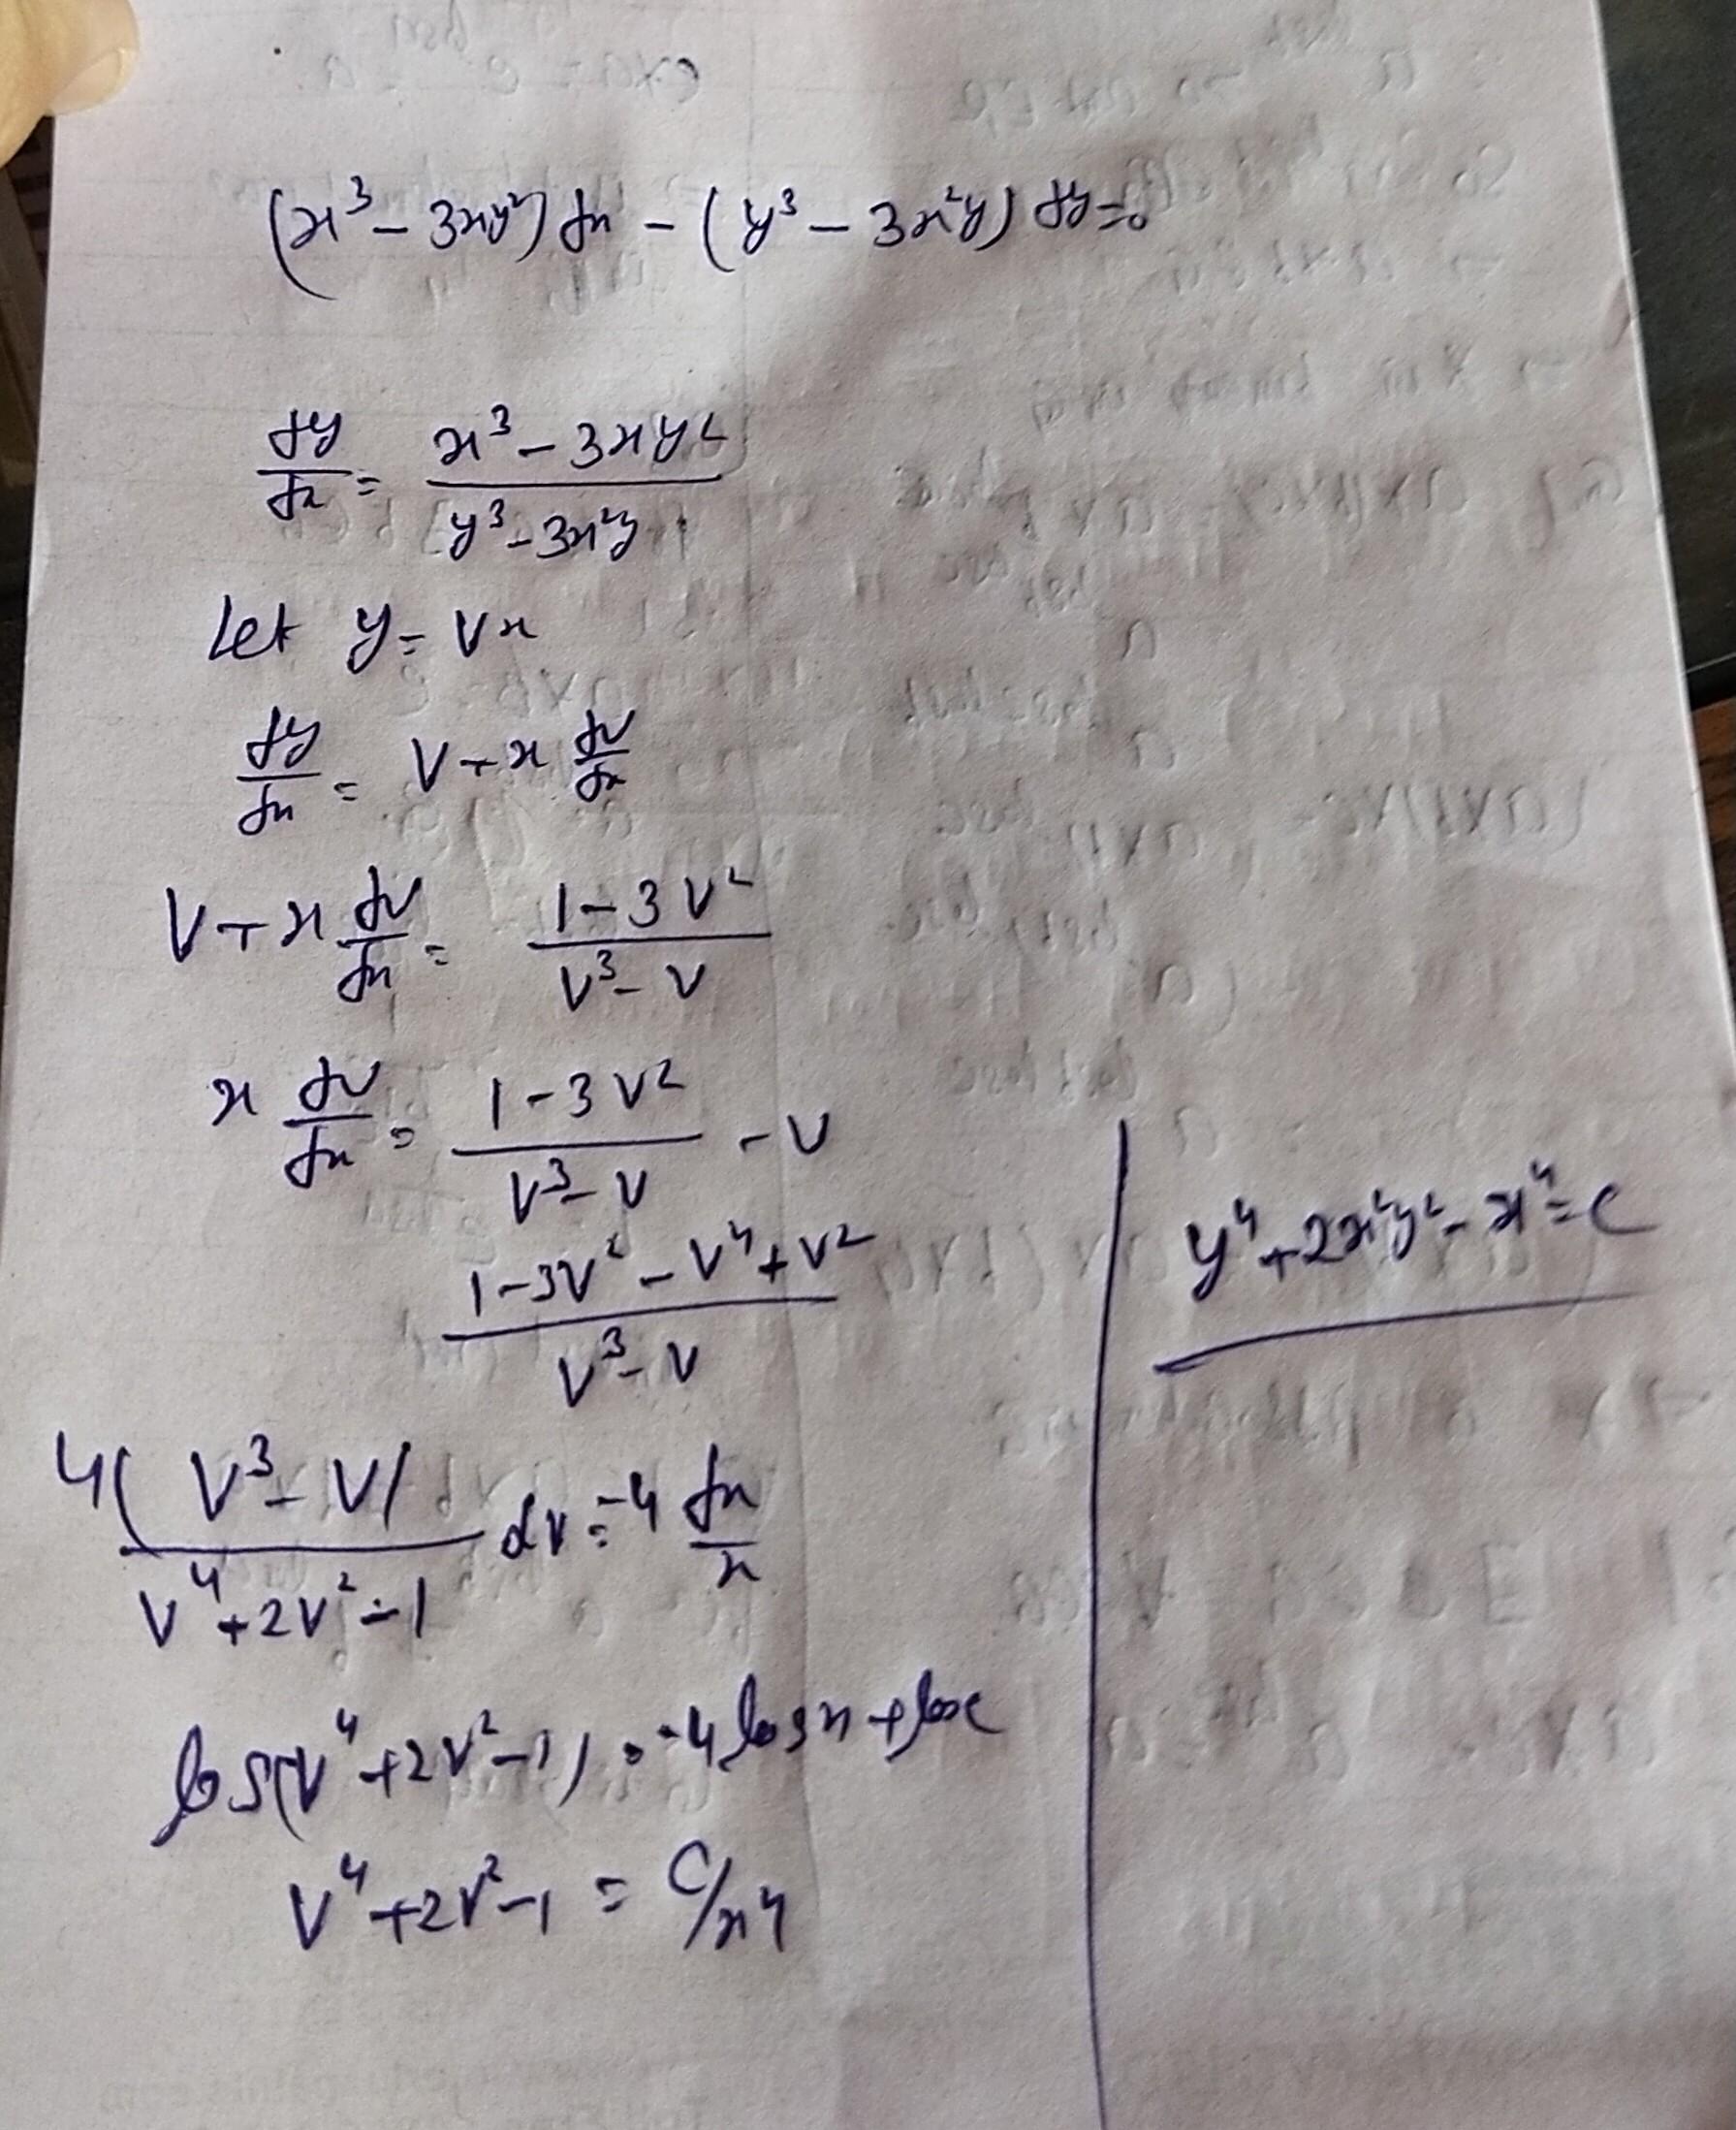 (x³ - 3xy²) dx - (y³ - 3x²y) dy = 0
dy/dx = (x³ - 3xy²)/(y³ - 3x²y)
Let y = vx
dy/dx = v + x dv/dx
v + x dv/dx = (1 - 3v²)/(v³ - v)
x dv/dx = (1 - 3v²)/(v³ - v) - v
(1 - 3v² - v⁴ + v²)/(v³ - v)
4(v³ - v)/(v⁴ + 2v² - 1) dv = -4 dx/x
log(v⁴ + 2v² - 1) = -4 log x + log c
v⁴ + 2v² - 1 = c/x⁴
y⁴ + 2x²y² - x⁴ = c